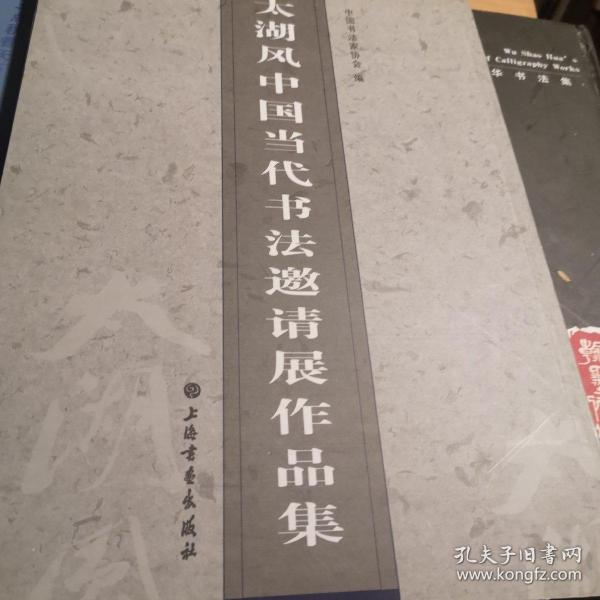 太湖风中国当代书法邀请展作品集
中国书法家协会 编
上海书画出版社
太湖风
Wu Shao Hua's
of Calligraphy Works
华书法集
孔夫子旧书网
www.kongfz.com